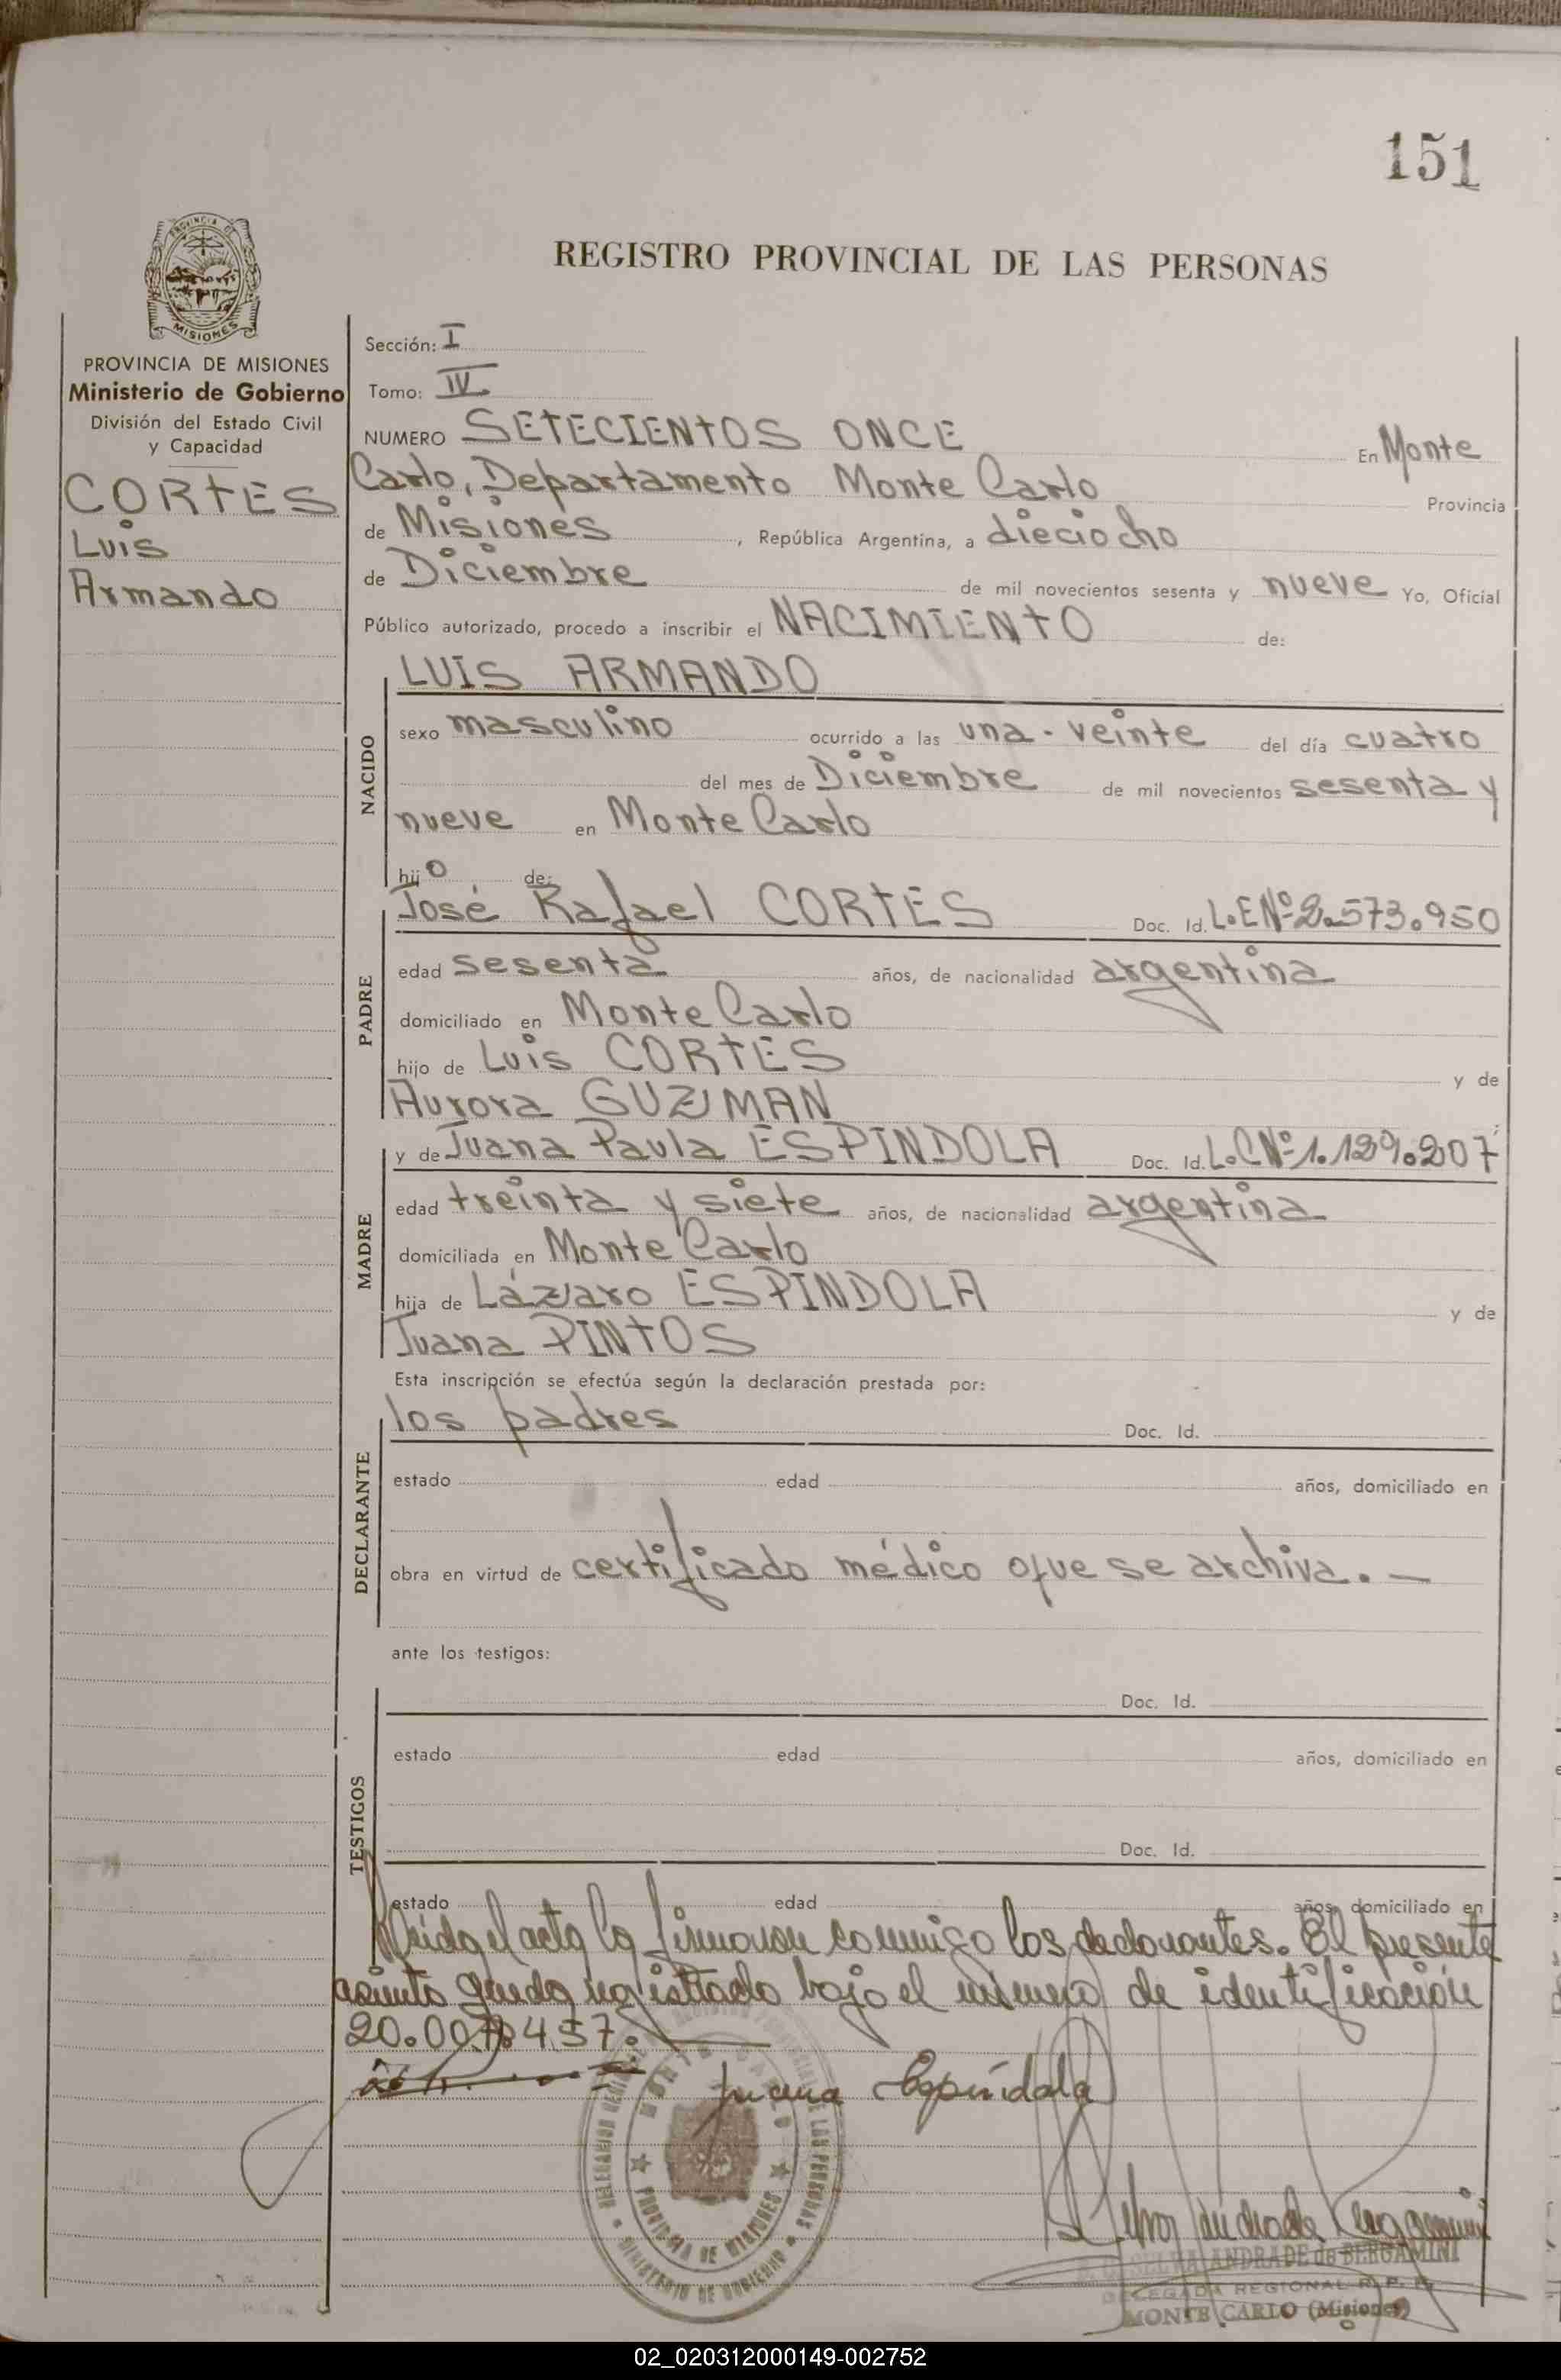 151
PROVINCIA DE
MISIONES
REGISTRO PROVINCIAL DE LAS PERSONAS
PROVINCIA DE MISIONES
Ministerio de Gobierno
División del Estado Civil
y Capacidad
CORTES
Luis
Armando
Sección: I
Tomo: IV
NUMERO SETECIENTOS ONCE En Monte
Carlo, Departamento Monte Carlo Provincia
de Misiones, República Argentina, a dieciocho
de Diciembre de mil novecientos sesenta y nueve Yo, Oficial
Público autorizado, procedo a inscribir el NACIMIENTO de:
NACIDO
LUIS ARMANDO
sexo masculino ocurrido a las una - veinte del día cuatro
del mes de Diciembre de mil novecientos sesenta y
nueve en Monte Carlo
hijo de:
PADRE
José Rafael CORTES Doc. Id. L.E Nº 2.573.950
edad sesenta años, de nacionalidad argentina
domiciliado en Monte Carlo
hijo de Luis CORTES y de
Aurora GUZMAN
MADRE
y de Juana Paula ESPINDOLA Doc. Id. L.C Nº 1.129.207
edad treinta y siete años, de nacionalidad argentina
domiciliada en Monte Carlo
hija de Lázaro ESPINDOLA y de
Juana PINTOS
Esta inscripción se efectúa según la declaración prestada por:
DECLARANTE
los padres Doc. Id.
estado edad años, domiciliado en
obra en virtud de certificado médico que se archiva. —
ante los testigos:
TESTIGOS
Doc. Id.
estado edad años, domiciliado en
Doc. Id.
estado edad años, domiciliado en
Leída el acta la firmaron conmigo los declarantes. El presente
asiento queda registrado bajo el número de identificación
Juana Espíndola
MONTE CARLO
PROVINCIA DE MISIONES
MINISTERIO DE GOBIERNO
SELVA ANDRADE de BERGAMINI
DELEGADA REGIONAL R. P. P.
MONTE CARLO (Misiones)
02_020312000149-002752